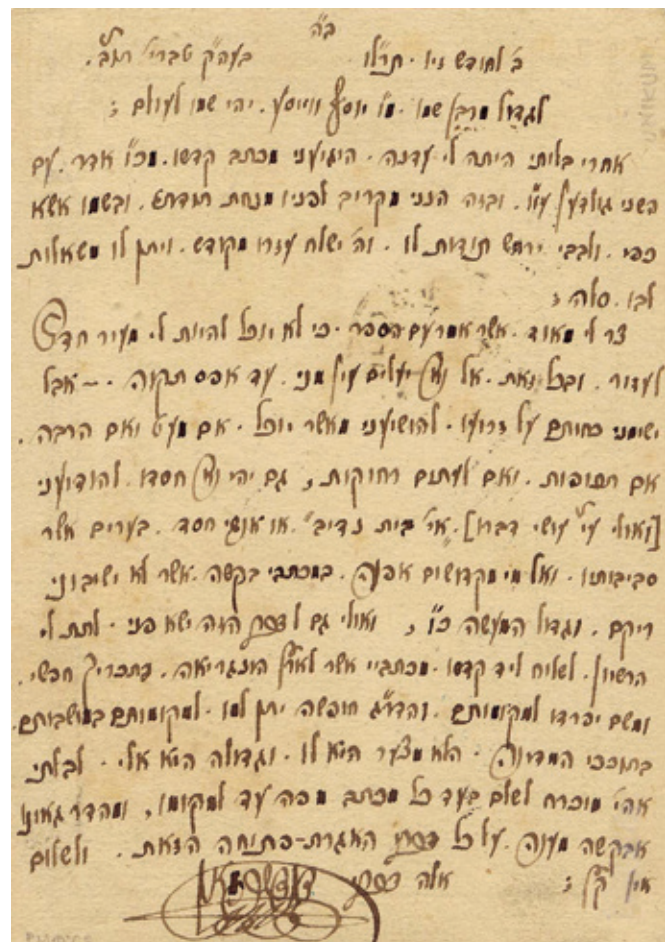 ב"ה
ב' לחודש זיו. תר"לו בעה"ק טבריי תוב"ב.
לגדול מרבן שמו. מו' יוסף ווייסע. יהי שמו לעולם :
אחרי בלותי היתה לי עדנה. היגיעני מכתב קדשו. מכ"ו אדר. עם
השני גולדען ע"וו. ובזה הנני מקריב לפניו מנחת תודתי. ובשמו אשא
כפי. ולבבי ירחש תודות לו. וה' ישלח עזרו מקודש. ויתן לו משאלות
לבו. סלה :
צר לי מאוד. אשר אמר עם הספר. כי לא יוכל להיות לי מעיר
לעזור. ובכל זאת. אל נא יעלים עין מני. עד אפס תקוה. — אבל
ישימני כחותם על זרועו. להושיעני מאשר יוכל. אם מעט ואם הרבה.
אם תכופות. ואם לעתים רחוקות, גם יהי נא חסדו. להודיעני
[ואולי ע"י עושי דברו]. אי' בית נדיב. או אנשי חסד. בערים אשר
סביבותיו. ואל מי מקדושים אפנה. במכתבי בקשה. אשר לא ישיבוני
ריקם. וגדול המעשה כו' ; ואולי גם לדבר הזה ישא פני. לתת לי
הרשיון. לשלוח ליד קדשו. מכתביי אשר לארץ הונגריאה. בתכריך חפשי.
ומשם יפרדו למקומותם. והדר"ג חופשה יתן למו. למקומותם במושבותם
בתוככי המדינה. הלא מצער היא לו. וגדולה היא אלי. לבלתי
אהי' מוכרח לשלם בעד כל מכתב מפה עד למקומו, ומהדר גאונו
אבקשה מענה. על כל דברי האגרת-פתוחה הזאת. ולשלום
אין קץ : אלה דברי